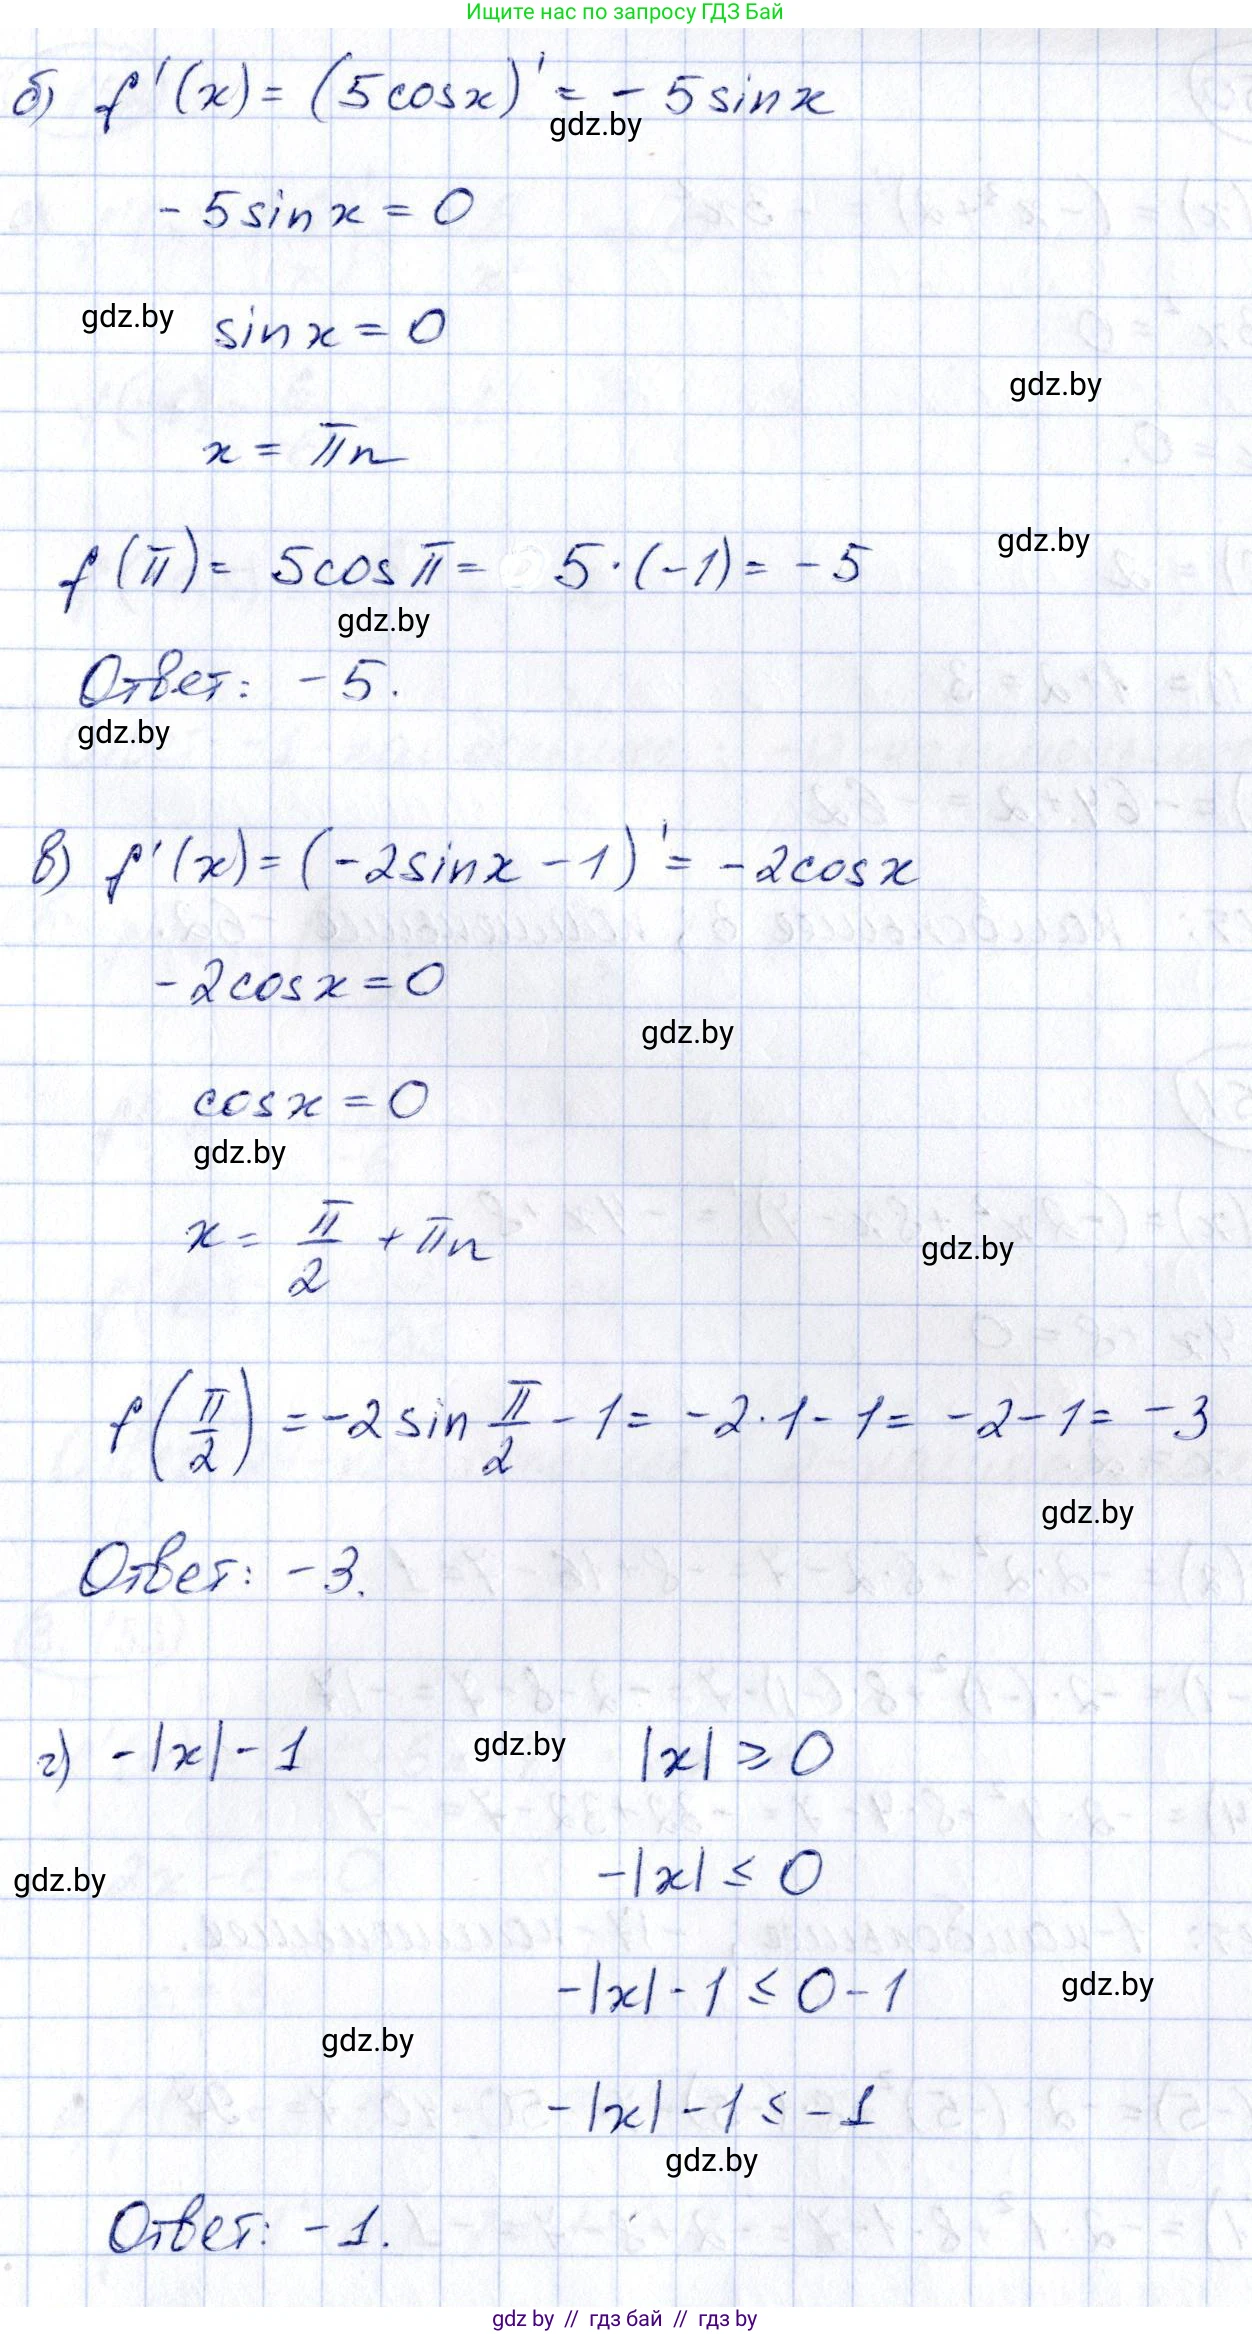 Ищите нас по запросу ГДЗ Бай
б) f'(x) = (5cosx)' = - 5sinx
gdz.by
- 5sinx = 0
gdz.by
sinx = 0
gdz.by
x = πn
gdz.by
f(π) = 5cosπ = 5·(-1) = -5
gdz.by
Ответ: -5.
gdz.by
в) f'(x) = (-2sinx - 1)' = -2cosx
-2cosx = 0
gdz.by
cosx = 0
gdz.by
x = π/2 + πn
gdz.by
f(π/2) = -2sin π/2 - 1 = -2·1 - 1 = -2 - 1 = -3
gdz.by
Ответ: -3.
г) -|x| - 1 gdz.by |x| ≥ 0
gdz.by -|x| ≤ 0
-|x| - 1 ≤ 0 - 1 gdz.by
gdz.by
-|x| - 1 ≤ -1
gdz.by
Ответ: -1.
gdz by // гдз бай // гдз by